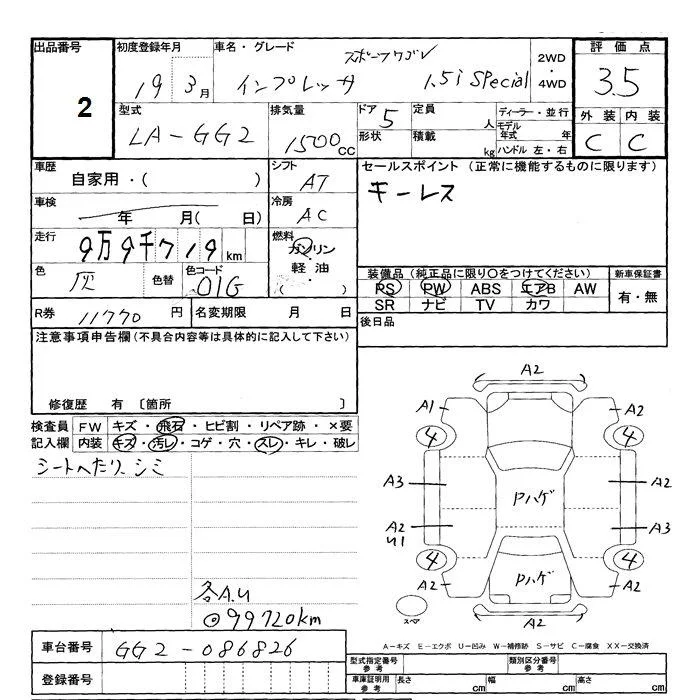 出品番号 初度登録年月 車名・グレード 2WD・4WD 評価点
2 19 3月 インプレッサ スポーツワゴン 1.5i Special 3.5
型式 排気量 ドア 定員 人 ディーラー・並行 外装 内装
LA-GG2 1500CC 5 形状 積載 kg モデル年式 年 ハンドル 左・右 C C
車歴 シフト セールスポイント (正常に機能するものに限ります)
自家用・( ) AT キーレス
車検 年 月( 日) 冷房 AC
走行 9万9千719km 燃料 ガソリン 軽油 ( )
色 灰 色替 色コード 01G 装備品(純正品に限り〇をつけてください) 新車保証書
PS PW ABS エアB AW 有・無
SR ナビ TV カワ
R券 11770 円 名変期限 月 日 後日品
注意事項申告欄(不具合内容等は具体的に記入して下さい)
修復歴 有 〔箇所 〕
検査員 FW キズ・飛石・ヒビ割・リペア跡・×要
記入欄 内装 キズ・汚レ・コゲ・穴・スレ・キレ・破レ
シートへたり シミ
A2
A1 A2
4 4
A3 Pハゲ A2
A2 A3
U1
4 4
A2 Pハゲ A2
A2
スペア
各A.U
◎99720km
A-キズ E-エクボ U-凹み W-補修跡 S-サビ C-腐食 XX-交換済
車台番号 GG2-086826
登録番号
型式指定番号 参考 類別区分番号 参考
車庫証明用 参考 長さ cm 幅 cm 高さ cm